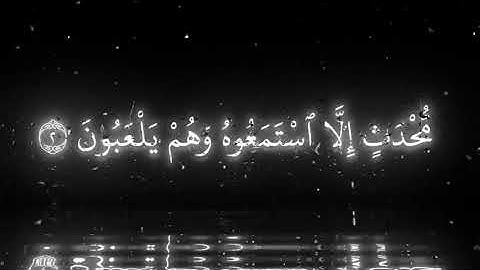 مُّحْدَثٍ إِلَّا ٱسْتَمَعُوهُ وَهُمْ يَلْعَبُونَ ٢